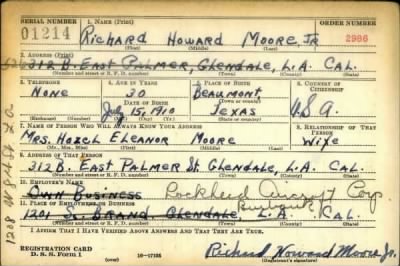 SERIAL NUMBER 1. NAME (Print) ORDER NUMBER
01214 Richard Howard Moore, Jr 2986
(First) (Middle) (Last)
2. ADDRESS (Print)
312 B. East Palmer, Glendale, L.A. Cal.
(Number and street or R. F. D. number) (Town) (County) (State)
3. TELEPHONE 4. AGE IN YEARS 5. PLACE OF BIRTH 6. COUNTRY OF CITIZENSHIP
None 30 Beaumont
DATE OF BIRTH (Town or county)
July 15, 1910 Texas U.S.A.
(Mo.) (Day) (Yr.) (State or country)
7. NAME OF PERSON WHO WILL ALWAYS KNOW YOUR ADDRESS 8. RELATIONSHIP OF THAT PERSON
Mrs. Hazel Eleanor Moore Wife
(Mr., Mrs., Miss) (First) (Middle) (Last)
9. ADDRESS OF THAT PERSON
312 B East Palmer St. Glendale, L.A. Cal.
(Number and street or R. F. D. number) (Town) (County) (State)
10. EMPLOYER'S NAME
Own Business Lockheed Aircraft Corp.
11. PLACE OF EMPLOYMENT OR BUSINESS
Burbank
1201 S. Brand Glendale, L.A. Cal.
(Number and street or R. F. D. number) (Town) (County) (State)
I AFFIRM THAT I HAVE VERIFIED ABOVE ANSWERS AND THAT THEY ARE TRUE.
REGISTRATION CARD
D. S. S. FORM 1 (over) 16-17105
Richard Howard Moore Jr.
(Registrant's signature)